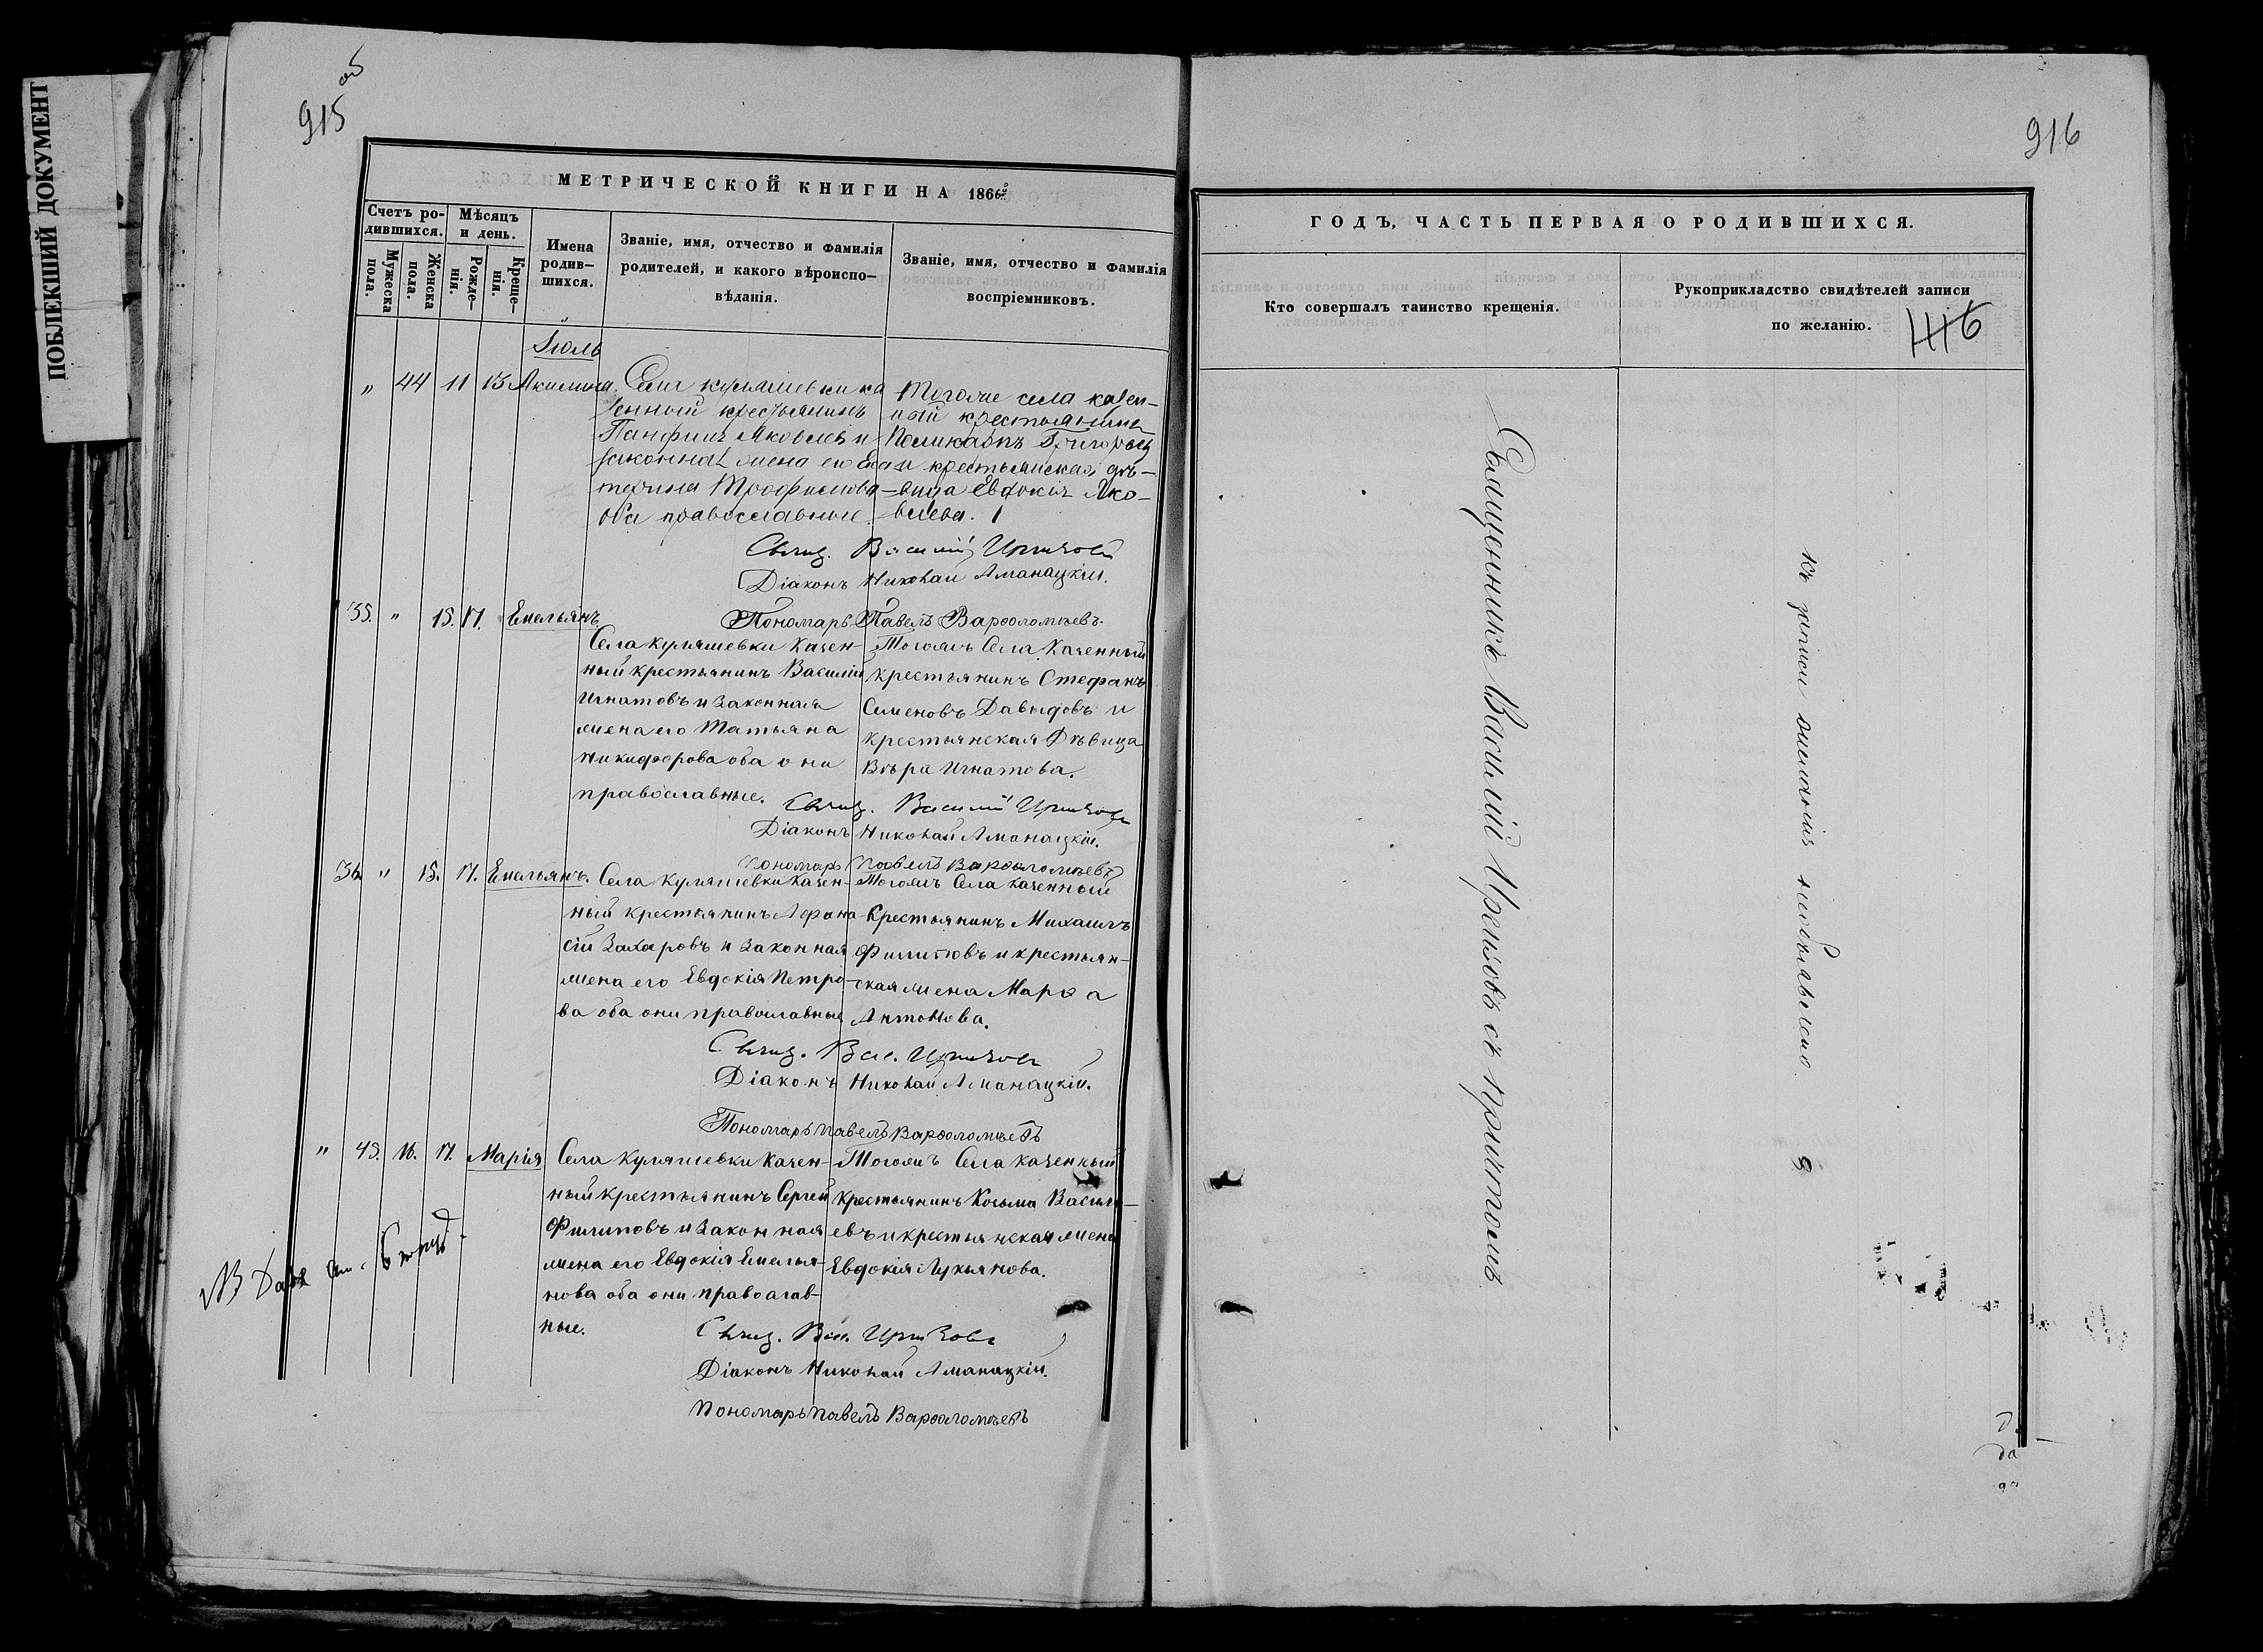 ПОБЛЕКШИЙ ДОКУМЕНТ
915
об
МЕТРИЧЕСКОЙ КНИГИ НА 1866
Счетъ ро-
дившихся.
Мужеска
пола.
Женска
пола.
Мѣсяцъ
и день.
Рожде-
нія.
Креще-
нія.
Имена
родив-
шихся.
Званіе, имя, отчество и фамилія
родителей, и какого вѣроиспо-
вѣданія.
Званіе, имя, отчество и фамилія
воспріемниковъ.
Іюль
" 44 11 13 Акилина.
Села Куляшевки ка
зенный крестьянинъ
Панфилъ Яковлевъ и
законная жена его Ека
терина Трофимова
оба православные.
Тогоже села казен-
ный крестьянинъ
Поликарпъ Григорьевъ
и крестьянская дѣ-
вица Евдокія Яко-
влева.
Свящ. Василій
Діаконъ Николай Аманацкій.
Пономарь Павелъ Варѳоломѣевъ.
35. " 15. 17. Емельянъ.
Села Куляшевки Казен-
ный крестьянинъ Василій
Игнатовъ и Законная
жена его Татьяна
Никифорова оба они
православные.
Тогожъ Села Казенный
крестьянинъ Стефанъ
Семеновъ Давыдовъ и
крестьянская Дѣвица
Вѣра Игнатова.
Свящ. Василій
Діаконъ Николай Аманацкій.
Пономарь Павелъ Варѳоломѣевъ
36 " 15. 17. Емельянъ.
Села Куляшевки Казен-
ный крестьянинъ Афана
сій Захаровъ и Законная
жена его Евдокія Петро-
ва оба они православные
Тогожъ Села Казенный
Крестьянинъ Михаилъ
Филиповъ и крестьян-
ская жена Марѳа
Антонова.
Свящ. Вас.
Діаконъ Николай Аманацкій.
Пономарь Павелъ Варѳоломѣевъ
" 45. 16. 17. Марія
Села Куляшевки Казен-
ный крестьянинъ Сергей
Филиповъ и Законная
жена его Евдокія Емелья-
нова оба они православ-
ные.
Тогожъ Села Казенный
крестьянинъ Козьма Василь-
евъ и крестьянская жена
Евдокія Лукьянова.
Свящ. Вас.
Діаконъ Николай Аманацкій.
Пономарь Павелъ Варѳоломѣевъ
916
ГОДЪ, ЧАСТЬ ПЕРВАЯ О РОДИВШИХСЯ.
Кто совершалъ таинство крещенія.
Рукоприкладство свидѣтелей записи
по желанію.
416
Священникъ Василій съ причтомъ
Къ записи